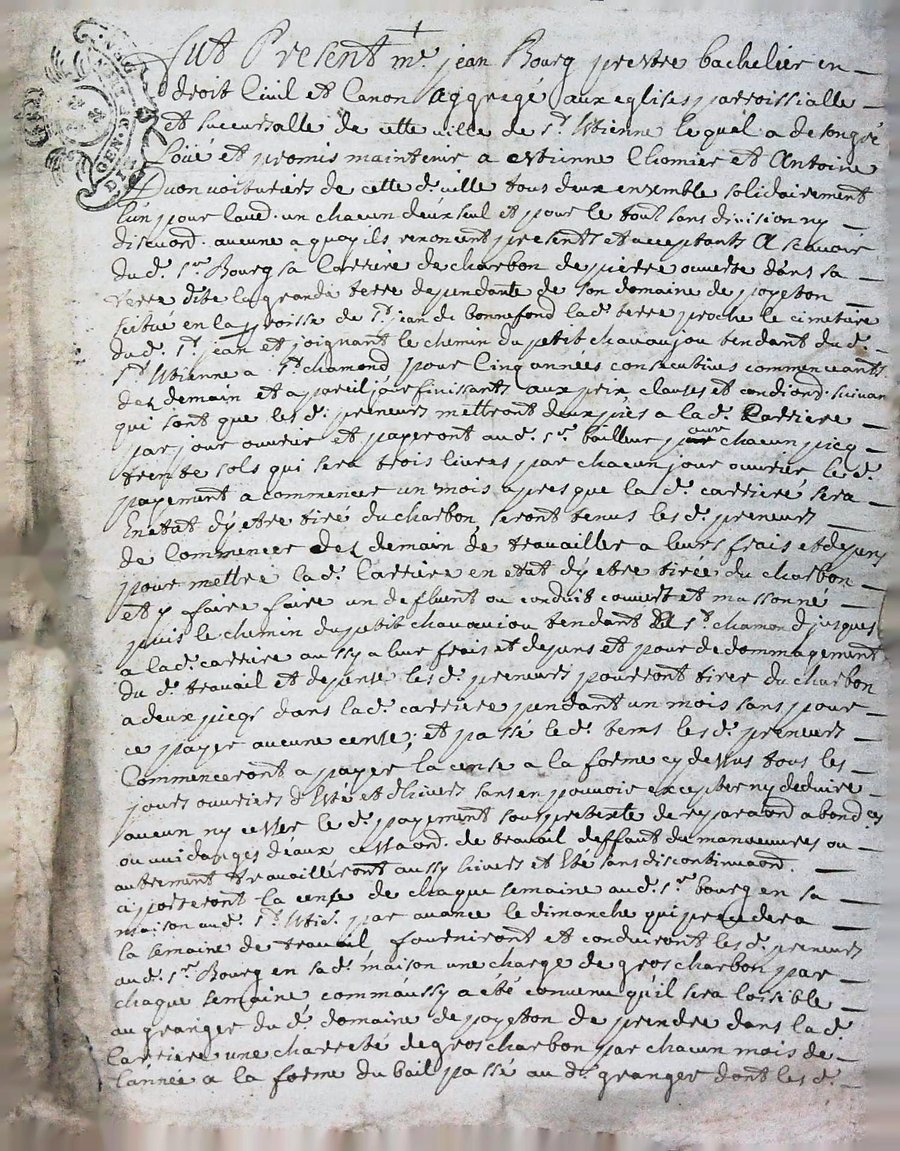 GEN. DE
Fut Present me. jean Bourg prestre bachelier en
droit Civil et Canon aggregé aux eglises parroissialle
et succursalle de cette ville de st. Etienne lequel a de son gré
Loüé et promis maintenir a estienne Chomier et Antoine
Duon voituriers de cette d. ville tous deux ensemble solidairement
lun pour laud. un chacun deux seul et pour le tout sans division ny
discuord. aucune a quoy ils renoncent presents et acceptants A scavoir
du d. sr. Bourg sa Carriere de charbon de pierre ouverte dans sa
terre dite la grande terre dependante de son domaine de poyeton
scitué en la parroisse de st. jean de bonnefond la d. terre proche le cimetiere
du d. st. jean et joignant le chemin du petit chavaujou tendant du d.
st. Etienne a st. chamond pour Cinq années consecutives commenceants
dez demain et a pareil jour finissants aux prix, clauses et condiōnd. suivan
que sont que les d. preneurs mettront deux pics a la d. Carriere
par jour ouvrier et payeront aud. sr. bailleur pour chacun picq
trente sols qui sera trois livres par chacun jour ouvrier le d.
payement a commencer un mois apres que la d. carriere sera
En état dy etre tiré du charbon, seront tenus les d. preneurs
de Commencer dez demain de travailler a leurs frais et depens
pour mettre la d. Carriere en etat dy etre tiree du charbon
et y faire faire un defluent ou conduit couvert et massonné
puis le chemin du petit chavaujou tendant a st. chamond jusques
a la d. carriere aussy a leur frais et depens et pour dedommagement
du d. travail et depense les d. preneurs pourront tirer du charbon
a deux picqs dans la d. carriere pendant un mois sans pour
ce payer aucune cense; et passé le d. tems les d. preneurs
Commenceront a payer la cense a la forme cy dessus tous les
jours ouvriers d'Esté et d'hivers sans en pouvoir excepter ny deduire
aucun ny cesser le d. payement sous pretexte de reparaōnd abondces
ou vuidanges d'eaux cessaōnd. de travail deffaut du manoeuvres ou
autrement travailléront aussy hivers et Eté sans discontinuaōnd.
aporteront la cense de chaque semaine aud. sr. bourg en sa
maison aud. st. Etie. par avance le dimanche qui precedera
la semaine de travail fourniront et conduiront les d. preneurs
aud. sr. Bourg en sa d. maison une charge de gros charbon par
chaque semaine comm'aussy a été convenu qu'il sera loisible
au granger du d. domaine de poyeton de prendre dans la d.
Carriere une charreté de gros charbon par chacun mois de
l'année a la forme du bail passé au d. granger dont les d.